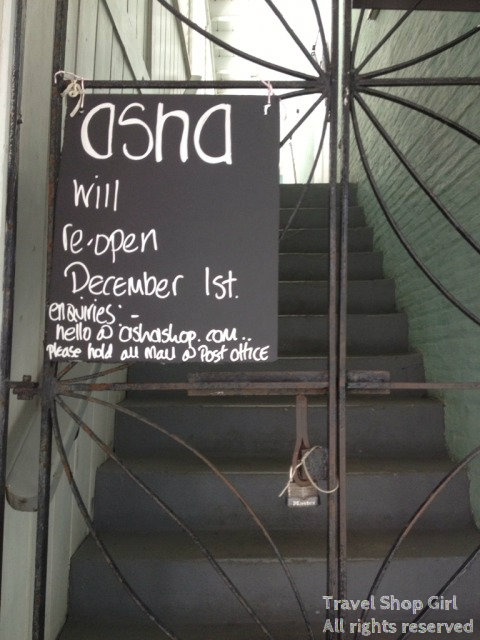 asha
will
re-open
December 1st.
enquiries:-
hello@ashashop.com..
please hold all mail @ Post office
Master
Travel Shop Girl
All rights reserved